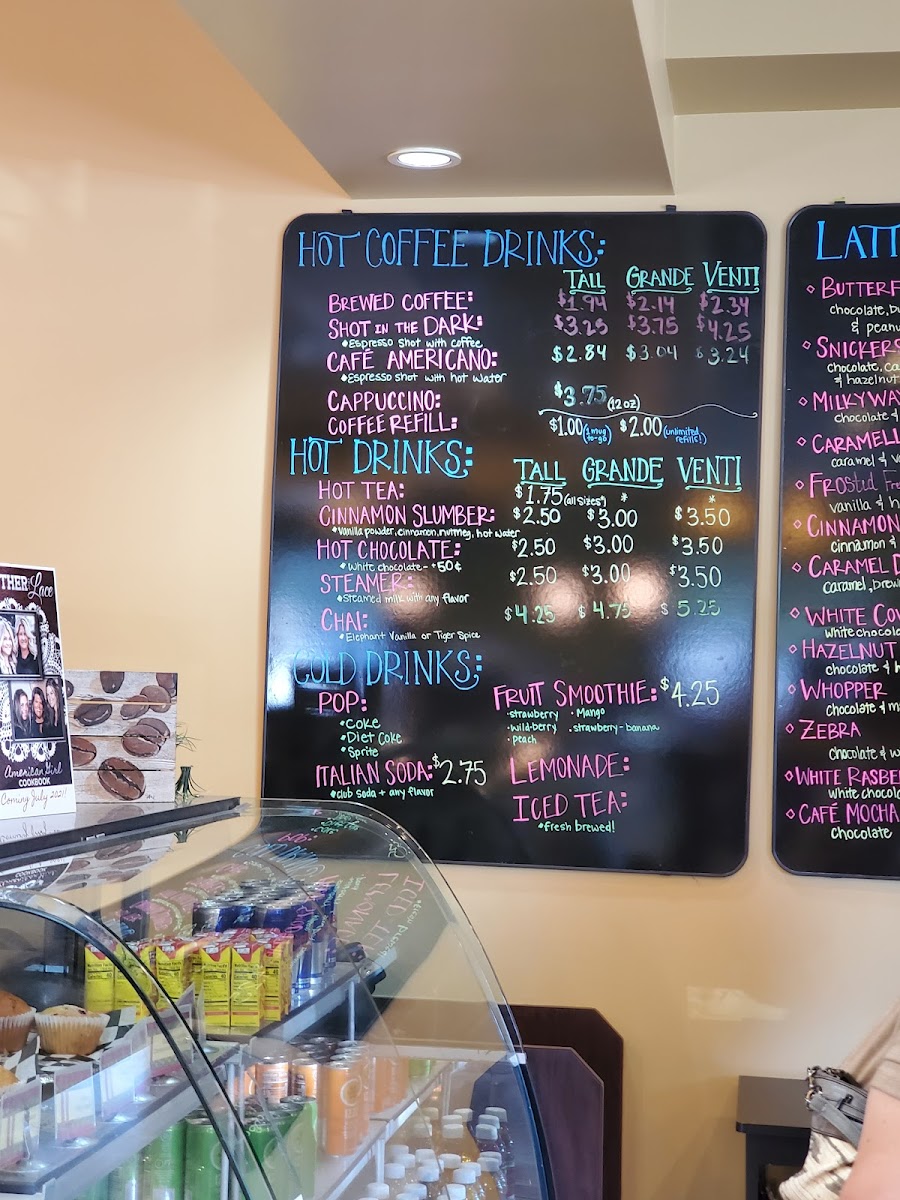 HOT COFFEE DRINKS:
TALL GRANDE VENTI
BREWED COFFEE: $1.94 $2.14 $2.34
SHOT IN THE DARK: $3.25 $3.75 $4.25
Espresso shot with coffee
CAFÉ AMERICANO: $2.84 $3.04 $3.24
Espresso shot with hot water
CAPPUCCINO: $3.75 (12oz)
COFFEE REFILL: $1.00 (1 mug to-go) $2.00 (unlimited refills!)
HOT DRINKS:
TALL GRANDE VENTI
HOT TEA: $1.75 (all sizes*) * *
CINNAMON SLUMBER: $2.50 $3.00 $3.50
Vanilla powder, cinnamon, nutmeg, hot water
HOT CHOCOLATE: $2.50 $3.00 $3.50
White chocolate - +50¢
STEAMER: $2.50 $3.00 $3.50
Steamed milk with any flavor
CHAI: $4.25 $4.75 $5.25
Elephant Vanilla or Tiger Spice
COLD DRINKS:
POP:
Coke
Diet Coke
Sprite
ITALIAN SODA: $2.75
club soda + any flavor
FRUIT SMOOTHIE: $4.25
strawberry Mango
wild-berry strawberry-banana
peach
LEMONADE:
ICED TEA:
fresh brewed!
LATT
BUTTERF
chocolate, bu
& peanu
SNICKERS
chocolate, ca
& hazelnut
MILKYWAY
chocolate &
CARAMELL
caramel & va
FROSTED Fre
vanilla & h
CINNAMON
cinnamon &
CARAMEL D
caramel, brew
WHITE COW
white chocola
HAZELNUT
chocolate & h
WHOPPER
chocolate & ma
ZEBRA
chocolate & w
WHITE RASBE
white chocola
CAFÉ MOCHA
chocolate
THER & Lace
American Girl
COOKBOOK
Coming July 2021!